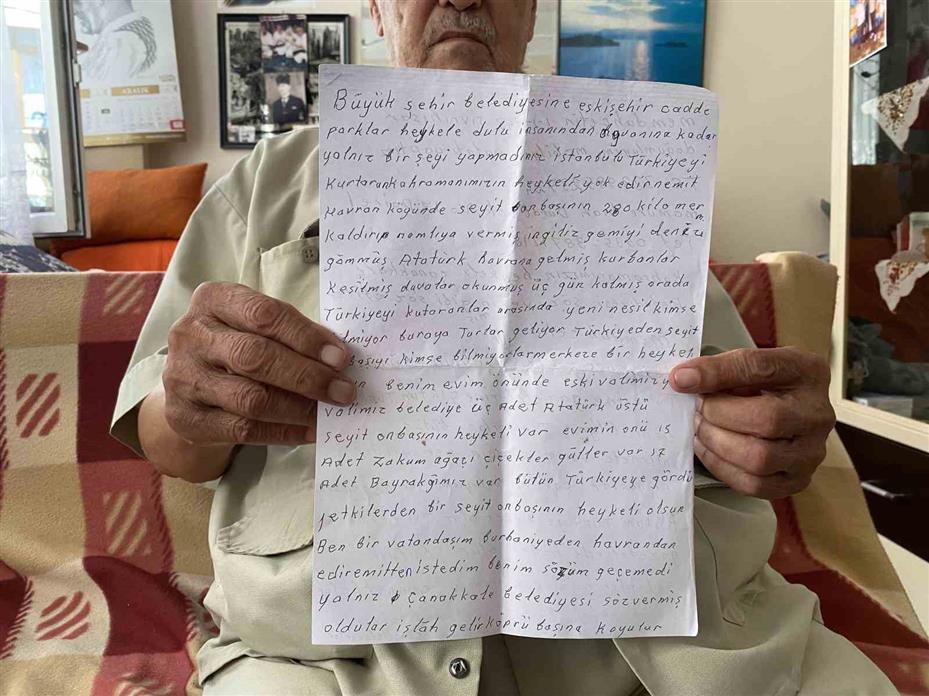 ARALIK
Büyük şehir belediyesine eskişehir cadde
parklar heykele dulu insanından ayvanına kadar
yalnız bir şeyi yapmadınız istanbulu Türkiyeyi
Kurtarankahramanımızın heykeli yok edirnemit
Havran köğünde seyit onbaşının 280 kilo mer
kaldırıp namlıya vermiş ingiliz gemiyi denize
gömmüş Atatürk havrana gelmiş kurbanlar
kesilmiş duvalar okunmuş üç gün kalmiş orada
Türkiyeyi kutaranlar arasında yeni nesil kimse
buraya Turlar geliyor Türkiyeden seyit
kimse bilmiyorlarmerkeze bir heykel
benim evim önünde eski valimiz y
valimiz belediye üç Adet Atatürk üstü
seyit onbaşının heykeli var evimin önü 15
Adet Zakum ağaçı çiçekler güller var 17
Adet Bayrakğımız var bütün Türkiyeye gördü
jetkilerden bir seyit onbaşının heykeli olsun
Ben bir vatandaşım burhaniyeden havrandan
ediremitten istedim benim sözüm geçemedi
yalnız Çanakkale belediyesi söz vermiş
oldular işlah gelir köprü başına koyulur